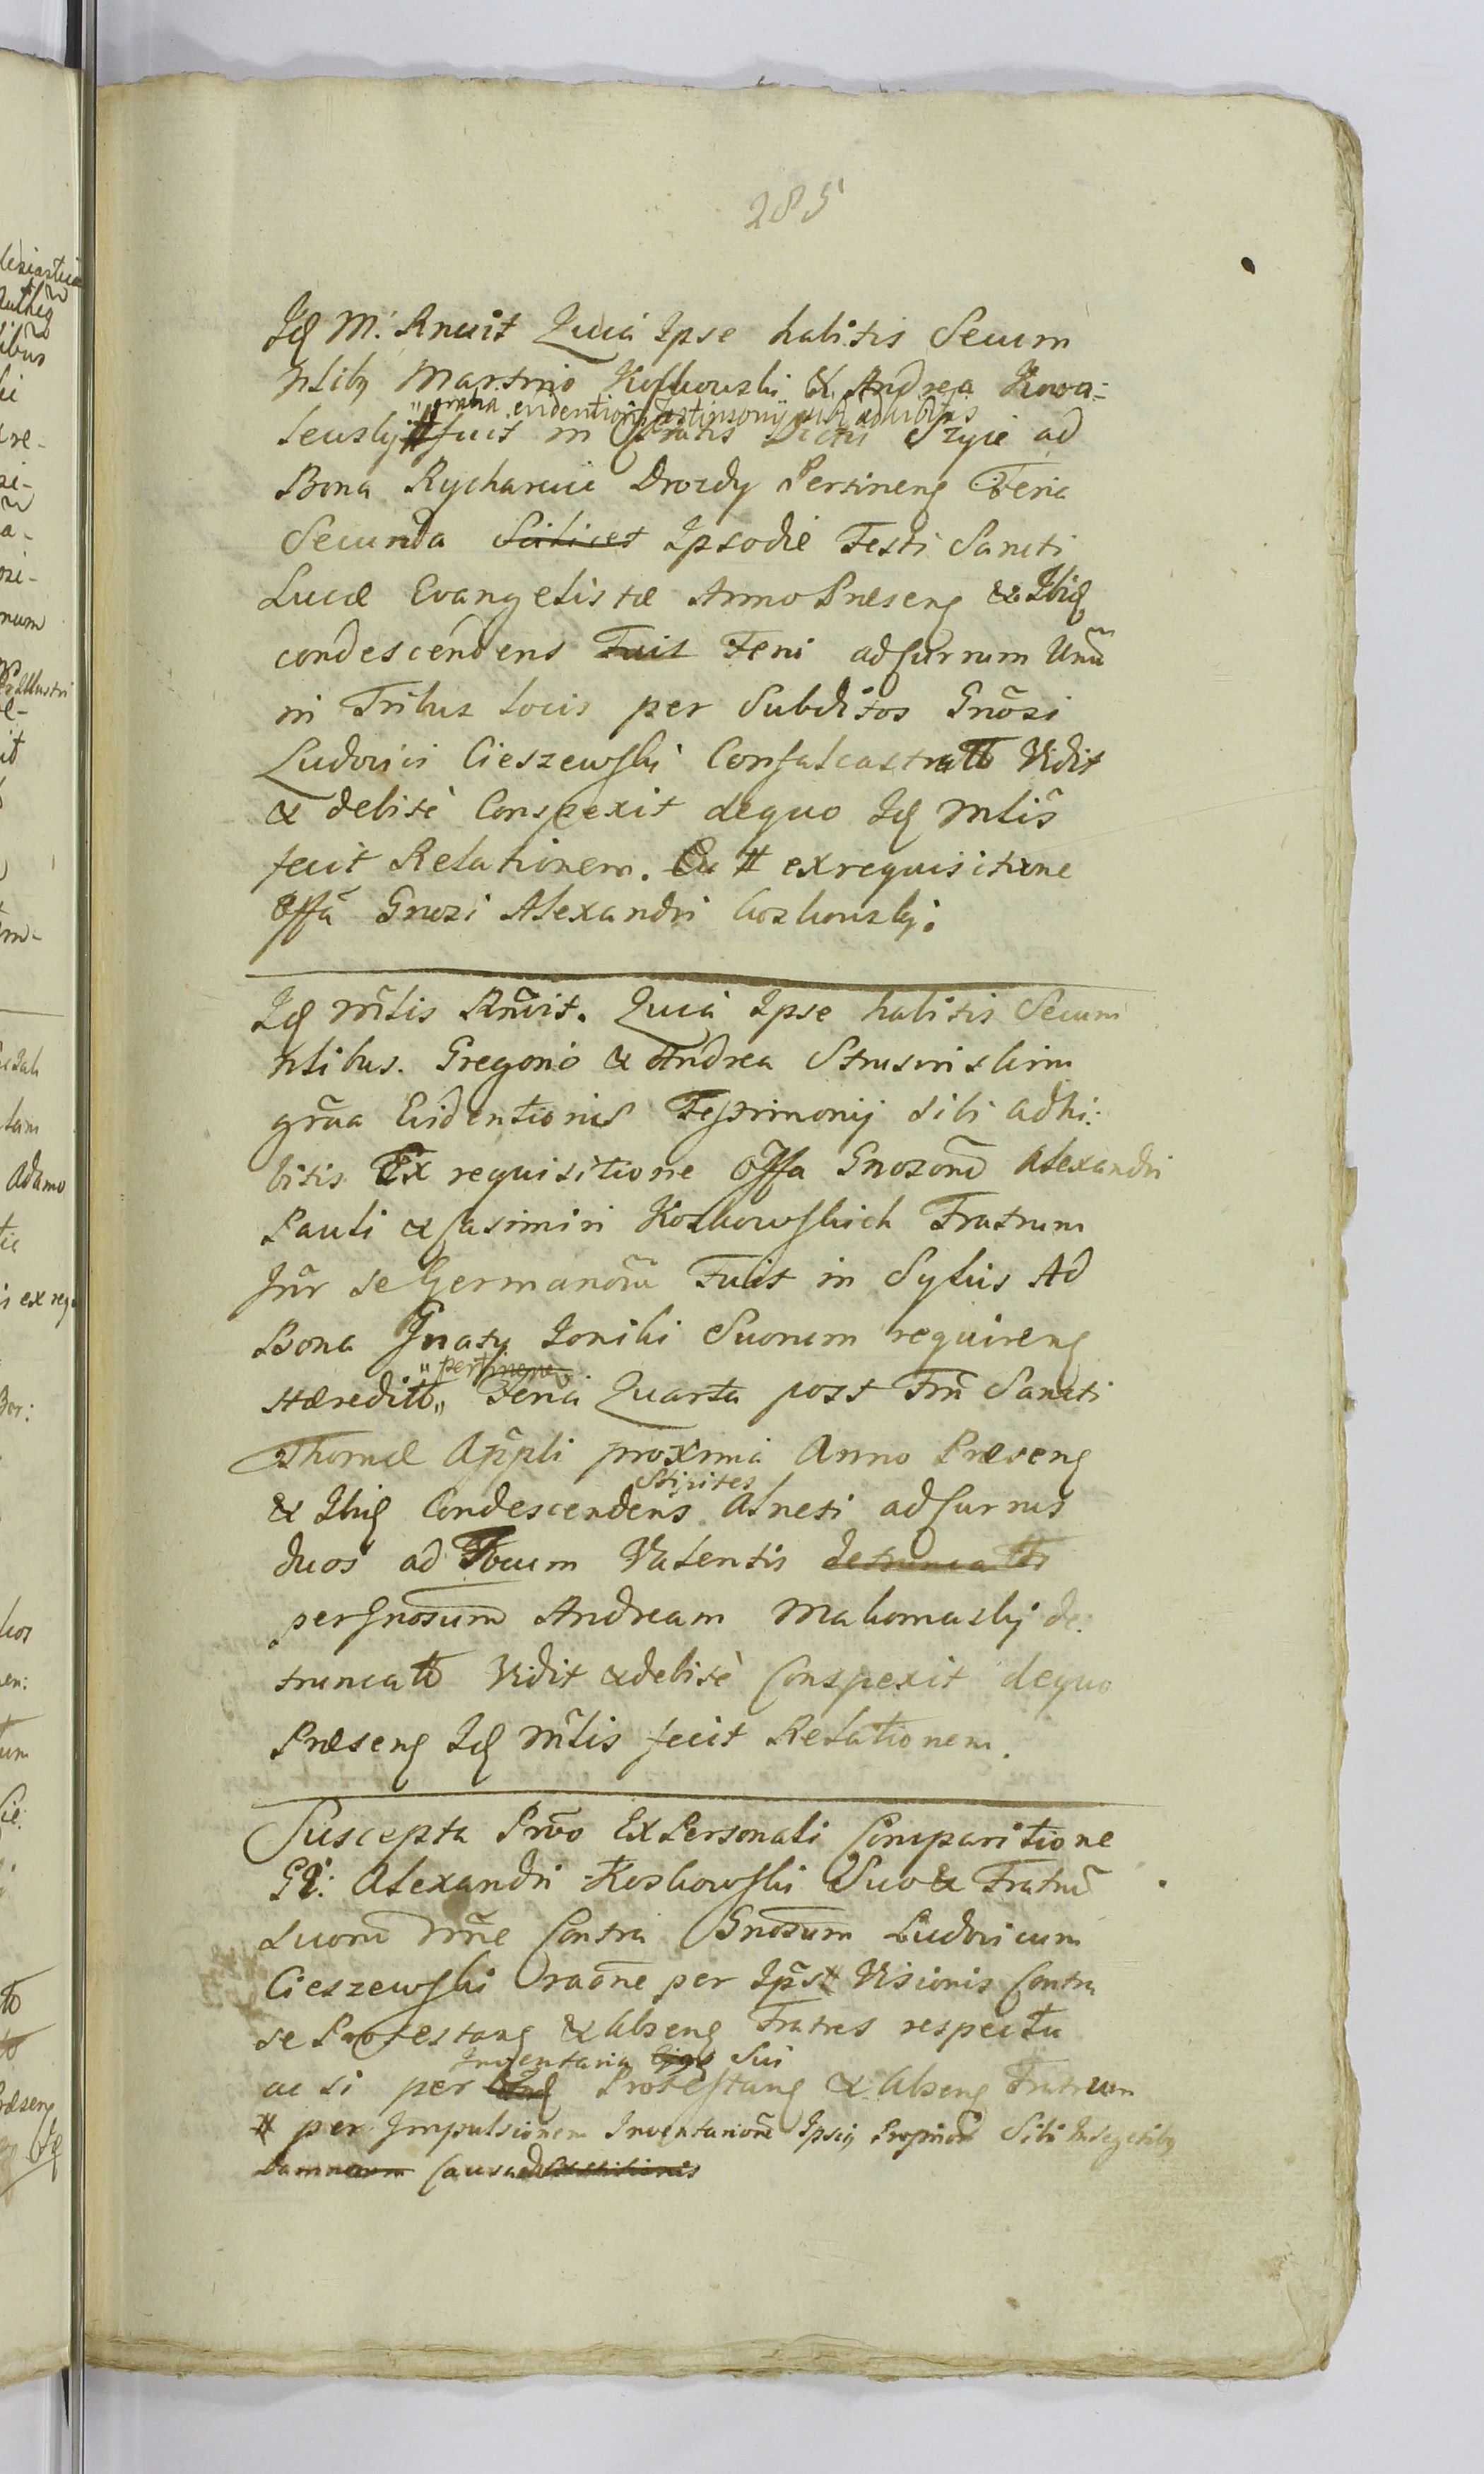 285
Idẽ M. Rnuit Quia Ipse habitis Secum
Nlibꝫ Martino Koskowski & Andrea Kowa-
"gratia evidentioris Testimonij sibi adhibitis
lewskij # fuit in Pratis Dictis Szyie ad
Bona Rycharcice Drozdy Pertinenꝭ Feria
Secunda Scilicet Ipsodie Festi Sancti
Lucæ Evangelistæ Anno Præsenꝭ & Ibidꝭ
condescendens Fuit Feni ad currum Unũ
in Tribus locis per Subditos Gnõsi
Ludovici Cieszewski Confalcastratt Vidit
& debitè Conspexit dequo Idꝭ Mtlis̃
fecit Relationem. Ex # ex requisitione
Offã Gnosi Alexandri koskowskj.
Idꝭ Mtlis Rñuit. Quia Ipse habitis Secum
Nlibus. Gregorio & Andrea Strusinskim
grãa Evidentioris Testimonij sibi adhi:
bitis Ex requisitione Offa Gnosorũ Alexandri
Pauli & Casimiri Koskowskich Fratrum
Intr se Germanorũ Fuit in Sylvis Ad
Bona Gnaty Ioniki Suorum requirenꝭ
"pertinenꝭ
Hæreditt" Feria Quarta post Ftm̃ Sancti
Thomæ App̃li proxima Anno Præsenꝭ
Stipites
& Ibidꝭ Condescendens Alneti ad currus
duos ad Focum Valentis detruncatts
per Gnosum Andream Makomaskj de:
truncatt Vidit & debitè Conspexit dequo
Præsenꝭ Idꝭ Mtlis fecit Relationem.
Suscepta Prõo Ex Personali Comparitione
GI: Alexandri Koskowski Suo & Fratrũ
Suorũ Nñe Contra Gnosum Ludovicum
Cieszewski Oraõne per Ipst Visionis Contra
se Protestanꝭ & Absenꝭ Fratres respectu
Inventaria Ejus Sui
ac si per Protestanꝭ & Absenꝭ Fratrum
# per Impulsionem Inventariorũ Ipsiꝫ Propriorũ Sibi in Segetibꝫ
Damnorum Causad